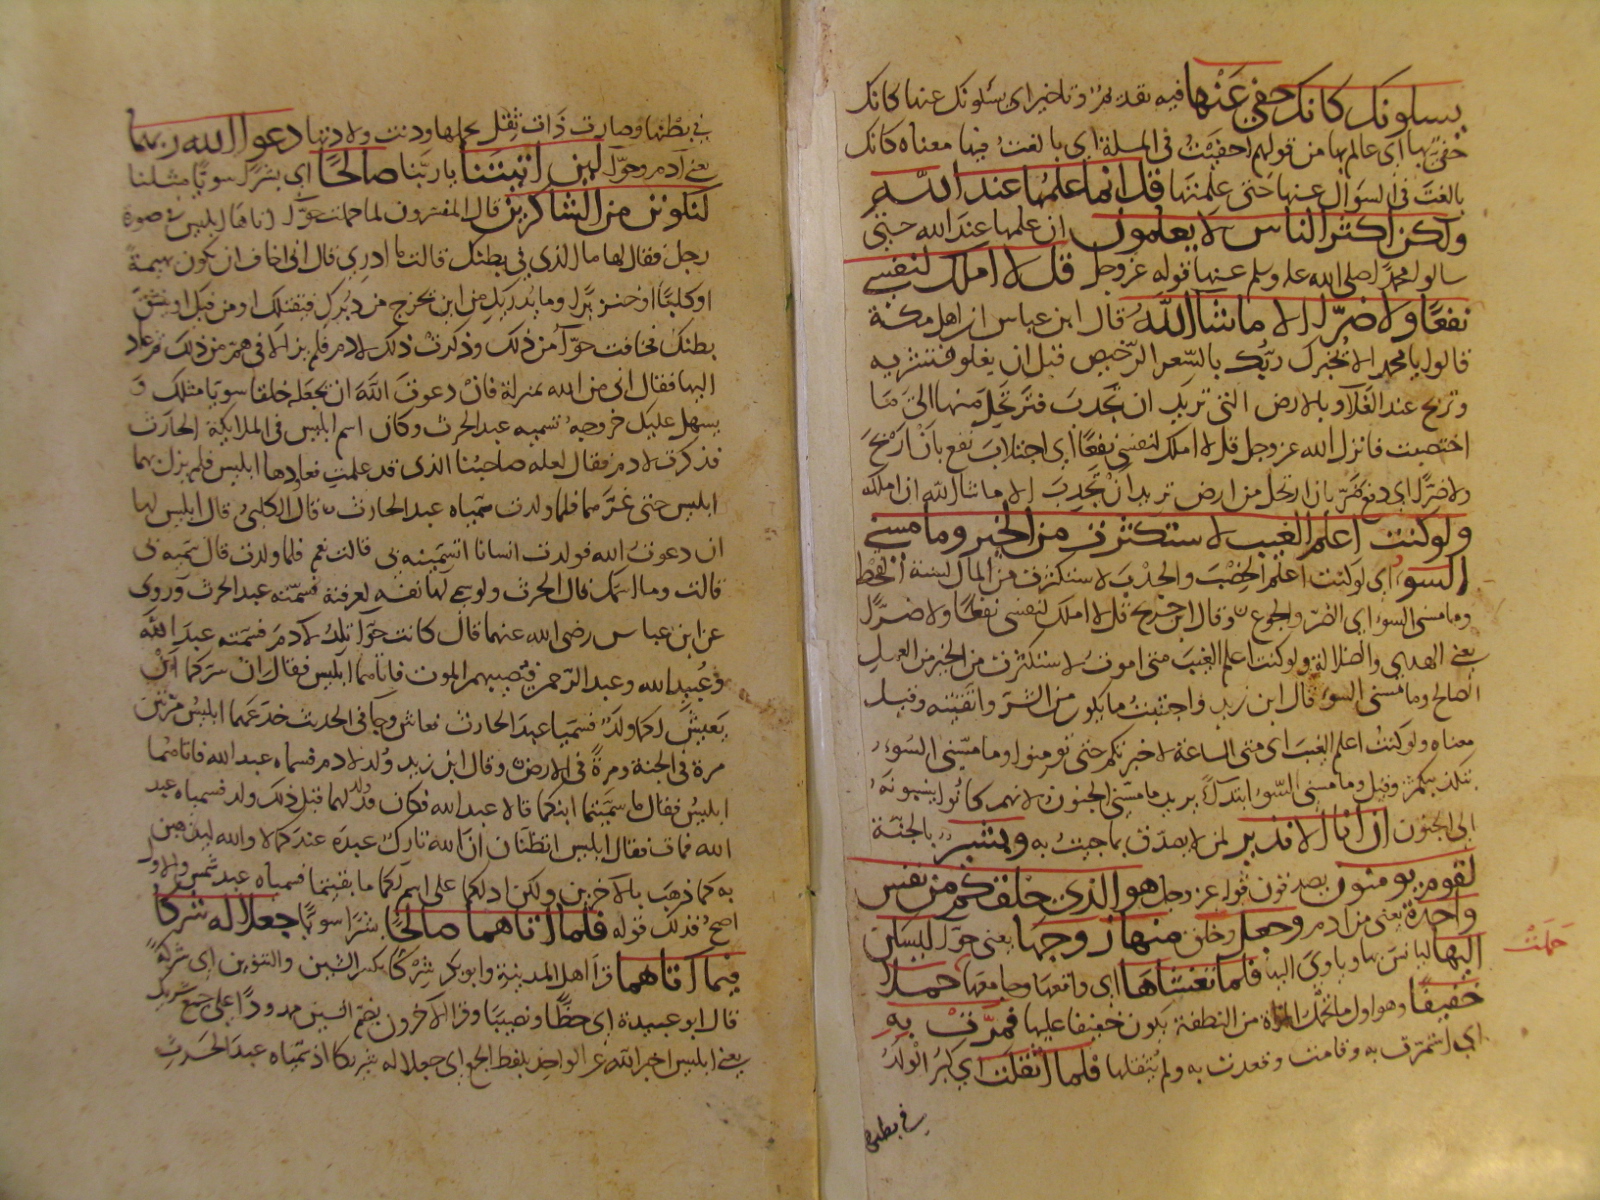 يسلونك كانك حفي عنها فيه تقديم وتاخير اي يسلونك عنها كانك
حفي بها اي عالم بها من قولهم احفيت في المسلة اي بالغت فيها معناه كانك
بالغت في السوال عنها حتى علمتها قل انما علمها عند الله
ولكن اكثر الناس لا يعلمون ان علمها عند الله حتى
سالوا محمدا صلى الله عليه وسلم عنها قوله عز وجل قل لا املك لنفسي
نفعا ولا ضرا الا ما شا الله قال ابن عباس ان اهل مكة
قالوا يا محمد الا يخبرك ربك بالسعر الرخيص قبل ان يغلو فتشتريه
وتربح عند الغلا وبالارض التي تريد ان تجدب فترتحل منها الى ما
اخصبت فانزل الله عز وجل قل لا املك لنفسي نفعا اي اجتلاب نفع بان اربح
ولا ضرا اي دفع ضر بان ارتحل من ارض تريد ان تجدب الا ما شا الله ان املكه
ولو كنت اعلم الغيب لاستكثرت من الخير وما مسني
السوء اي لو كنت اعلم الخصب والجدب لاستكثرت من المال لسنة القحط
وما مسني السوء اي الضر والجوع وقال ابن جريج قل لا املك لنفسي نفعا ولا ضرا
يعني الهدى والضلالة ولو كنت اعلم الغيب متى اموت لاستكثرت من الخير من العمل
الصالح وما مسني السوء قال ابن زيد واجتنبت ما يكون من الشر واتقيته وقيل
معناه ولو كنت اعلم الغيب اي متى الساعة لاخبرتكم حتى تومنوا وما مسني السوء
بتكذيبكم وقيل وما مسني السوء ابتدآء يريد ما مسني الجنون لانهم كانوا ينسبونه
الى الجنون ان انا الا نذير لمن لا يصدق بما جيت به وبشير بالجنة
لقوم يومنون يصدقون قوله عز وجل هو الذي خلقكم من نفس
واحدة يعني من ادم وجعل وخلق منها زوجها يعني حوا ليسكن
اليها ليانس بها وياوي اليها فلما تغشاها اي واقعها وجامعها حملا
حملت
خفيفا وهو اول ما تحمل المراة من النطفة يكون خفيفا عليها فمرت به
اي استمرت به وقامت وقعدت به ولم يثقلها فلما اثقلت اي كبر الولد
في بطنها
في بطنها وصارت ذات ثقل بحملها ودنت ولادتها دعوا الله ربهما
يعني آدم وحوا لين اتيتنا يا ربنا صالحا اي بشرا سويا مثلنا
لنكونن من الشاكرين قال المفسرون لما حملت حوا اتاها ابليس في صورة
رجل فقال لها ما الذي في بطنك قالت ما ادري قال اني اخاف ان يكون بهيمة
او كلبا او خنزيرا وما يدريك من اين يخرج من دبرك فيقتلك او من قبلك او ينشق
بطنك فخافت حوآ من ذلك وذكرت ذلك لادم فلم يزالا في هم من ذلك ثم عاد
اليها فقال اني من الله بمنزلة فان دعوت الله ان يجعله خلقا سويا مثلك و
يسهل عليك خروجه تسميه عبد الحرث وكان اسم ابليس في الملايكة الحارث
فذكرت لادم فقال لعله صاحبنا الذي قد علمت فعاودها ابليس فلم يزل بهما
ابليس حتى غرهما فلما ولدت سمياه عبد الحارث قال الكلبي قال ابليس لها
ان دعوت الله فولدت انسانا اتسمينه بي قالت نعم فلما ولدت قال سميه بي
قالت وما اسمك قال الحرث ولو سمى لها نفسه لعرفته فسمته عبد الحرث وروي
عن ابن عباس رضي الله عنهما قال كانت حوا تلد لادم فتسمته عبد الله
وعبيد الله وعبد الرحمن فيصيبهم الموت فاتاهما ابليس فقال ان سركما ان
يعيش لكما ولد فسمياه عبد الحارث فعاش وجا في الحديث خدعهما ابليس مرتين
مرة في الجنة ومرة في الارض وقال ابن زيد ولد لادم فسماه عبد الله فاتاهما
ابليس فقال ما سميتما ابنكما قالا عبد الله وكان قد ولد لهما قبل ذلك ولد فسمياه عبد
الله فمات فقال ابليس اتظنان ان الله تارك عبده عندكما لا والله ليذهبن
به كما ذهب بالآخر ولكن ادلكما على اسم لكما ما بقيتما فسمياه عبد شمس والاول
اصح فذلك قوله فلما اتاهما صالحا بشرا سويا جعلا له شركا
فيما آتاهما قرا اهل المدينة وابو بكر شركا بكسر الشين والتنوين اي شركة
قال ابو عبيدة اي حظا ونصيبا وقرا الآخرون بضم الشين ممدودا على جمع شريك
يعني ابليس اخبر الله عن الواحد بلفظ الجمع اي جعلا له شريكا اذ سمياه عبد الحرث